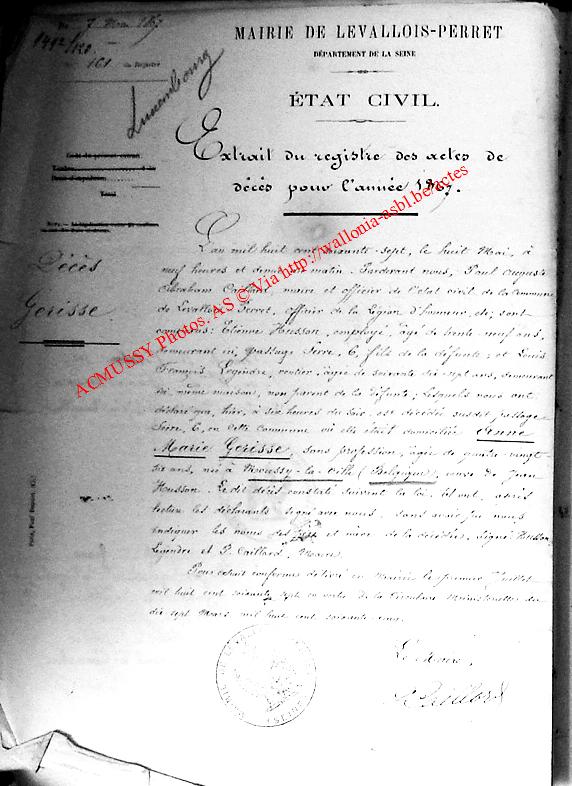 Du 7 Mai 1867
1492/120
N° 161 du Registre
Luxembourg
MAIRIE DE LEVALLOIS-PERRET
DÉPARTEMENT DE LA SEINE
ÉTAT CIVIL.
Extrait du registre des actes de
décès pour l'année 1867.
Total
Décès
Gerisse
L'an mil huit cent soixante sept, le huit Mai, à
neuf heures et demie du matin. Pardevant nous, Paul Auguste
Abraham Caillard, maire et officier de l'état civil de la Commune
de Levallois Perret, officier de la Légion d'honneur, etc, sont
comparus: Etienne Husson, employé, âgé de trente neuf ans,
demeurant ici, passage Serre, 6, fils de la défunte; et Louis
François Legendre, rentier, âgé de soixante dix sept ans, demeurant
même maison, non parent de la défunte; lesquels nous ont
déclaré que, hier, à six heures du soir, est décédée susdit passage
Serre, 6, en cette commune où elle était domiciliée Anne
Marie Gerisse, sans profession, âgée de quatre-vingt
ans, née à Roussy-la-Ville (Belgique), veuve de Jean
Husson. Ledit décès constaté suivant la loi. Et ont, après
lecture les déclarants signé avec nous, sans avoir pu nous
indiquer les noms des père et mère de la décédée, signé: Husson,
Legendre et P. Caillard, Maire.
Pour extrait conforme délivré en Mairie le premier Juillet
mil huit cent soixante sept en vertu de la Circulaire Ministérielle du
dix sept Mars mil huit cent soixante
Le Maire,
P. Caillard
ACMUSSY Photos. AS © Via http://wallonia-asbl.be/actes